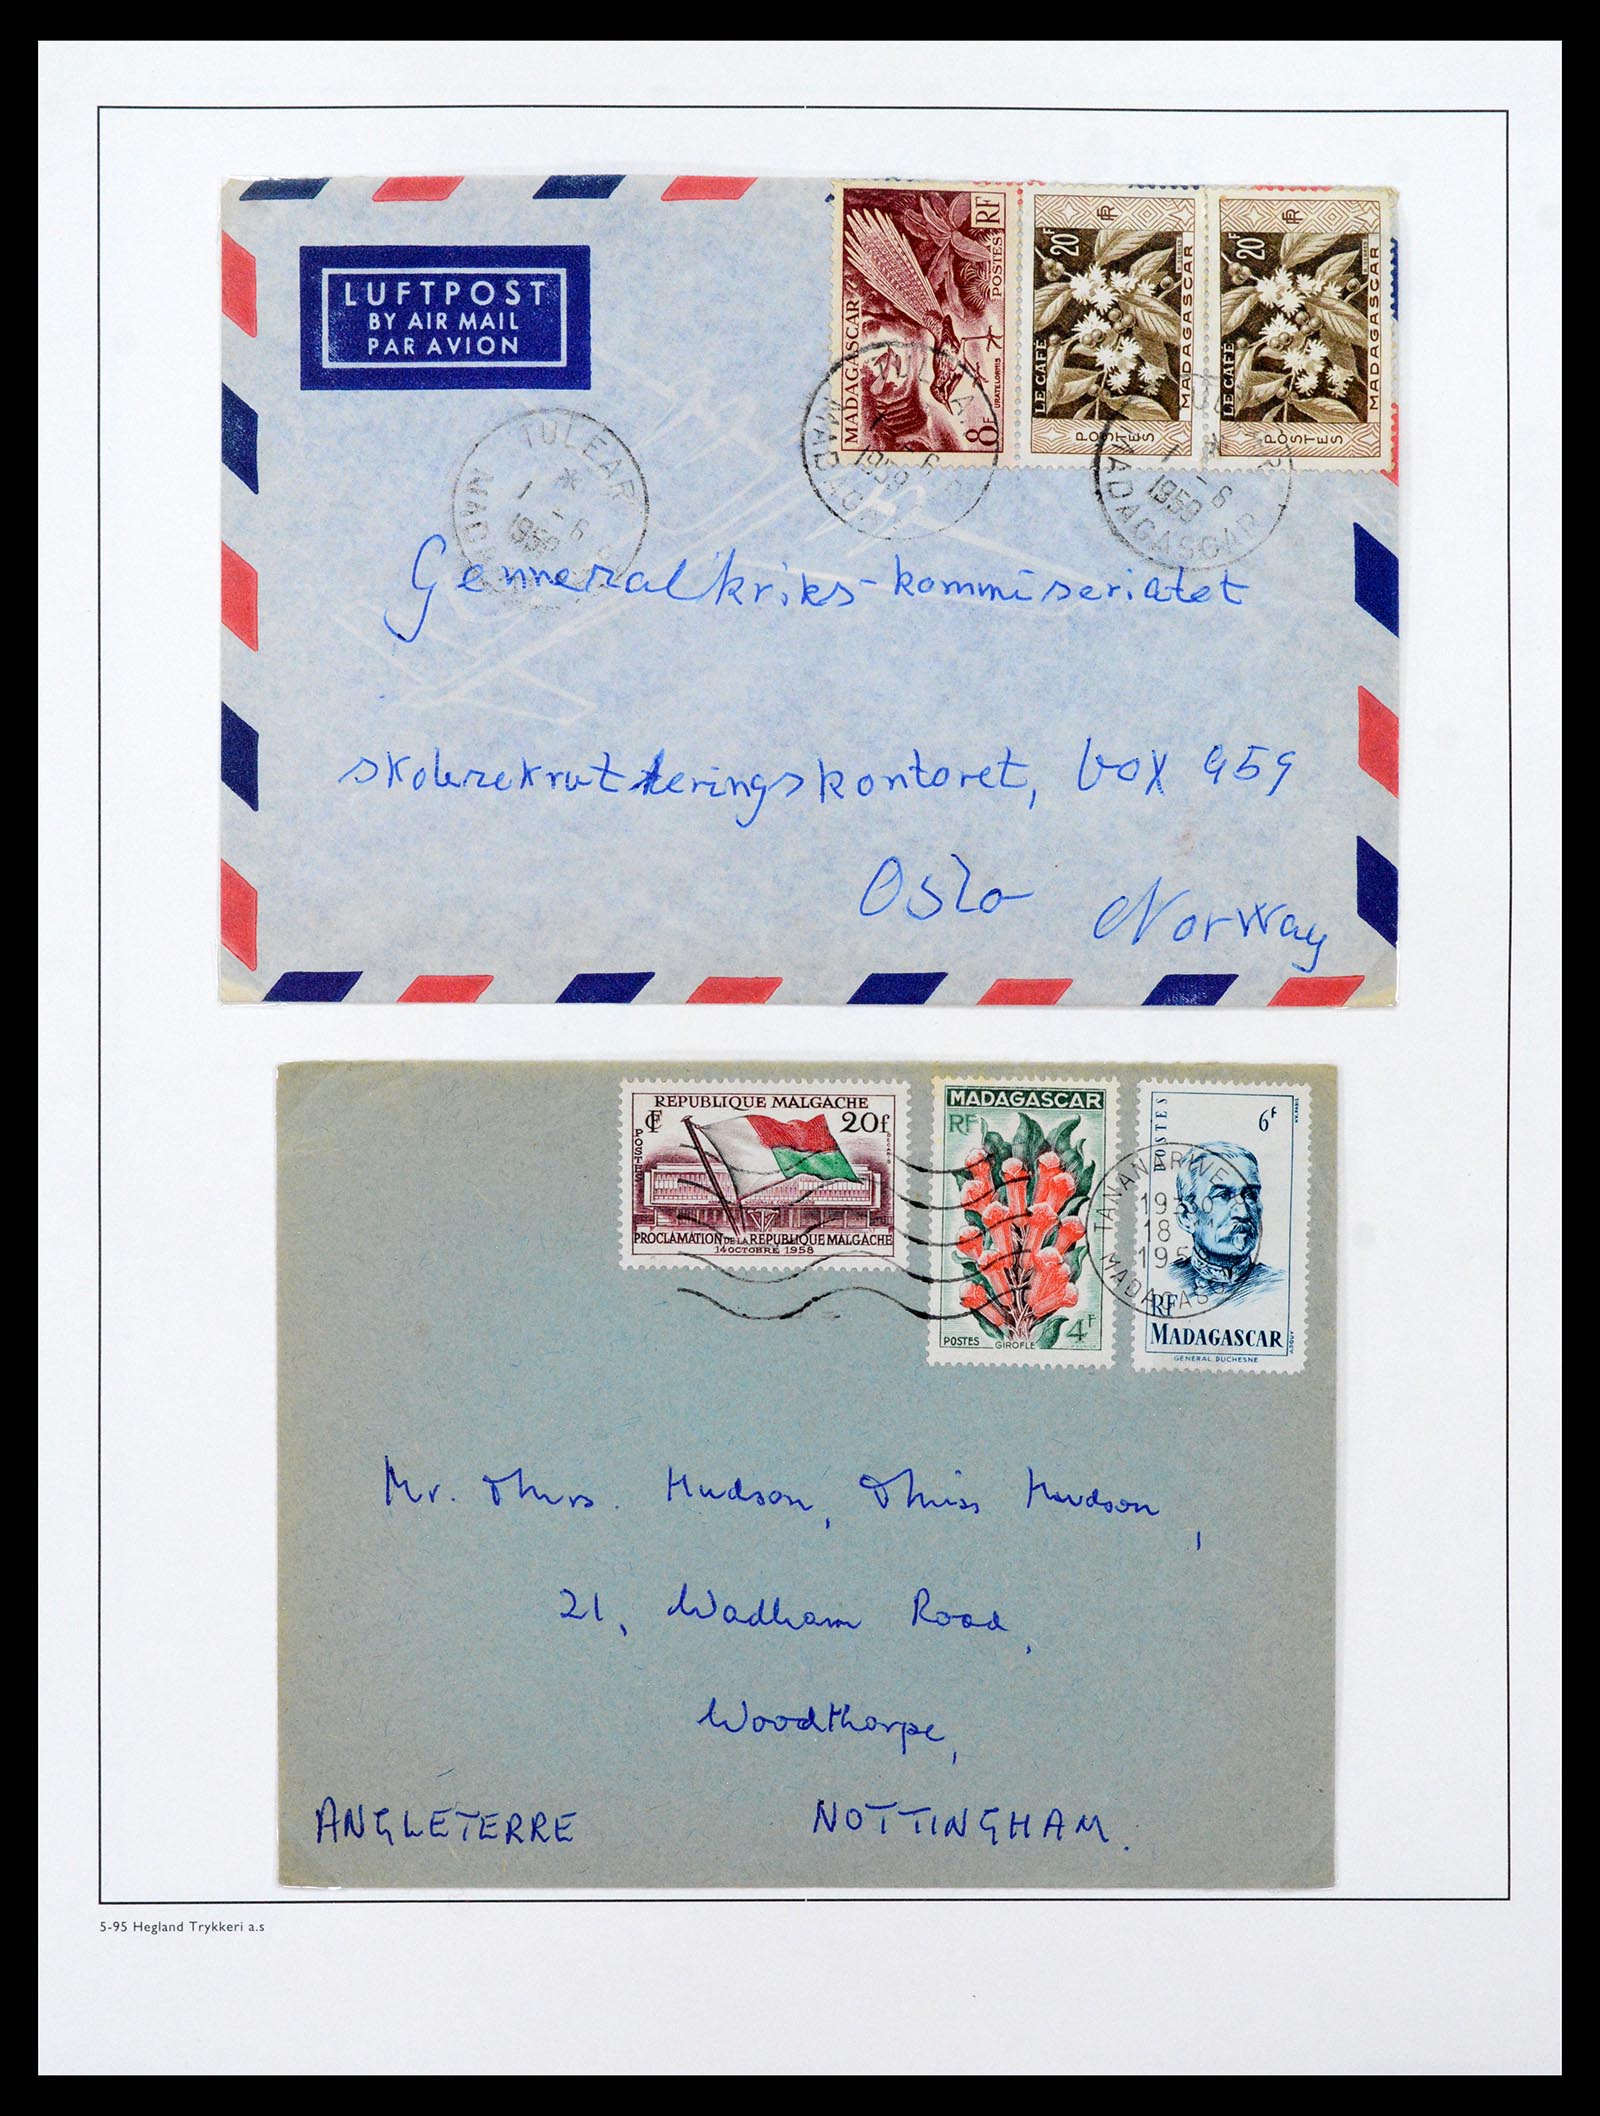 LUFTPOST
BY AIR MAIL
PAR AVION
RF
POSTES
MADAGASCAR
8F
URATELORNIS
RF
20F
LE CAFÉ
MADAGASCAR
POSTES
RF
20F
LE CAFÉ
MADAGASCAR
POSTES
TULEAR
1-6
1959
MADAGASCAR
1-6
1959
MADAGASCAR
1-6
1959
MADAGASCAR
Genneralkriks-kommiseriatet
skolerekrutteringskontoret, box 959
Oslo Norway
REPUBLIQUE MALGACHE
20f
POSTES
PROCLAMATION DE LA REPUBLIQUE MALGACHE
14 OCTOBRE 1958
MADAGASCAR
RF
POSTES
GIROFLE
4F
POSTES
6F
RF
MADAGASCAR
GENERAL DUCHESNE
TANANARIVE
1930
18
MADAGASCAR
Mr. & Mrs. Hudson, & Miss Hudson,
21, Wadham Road,
Woodthorpe,
ANGLETERRE NOTTINGHAM.
5-95 Hegland Trykkeri a.s